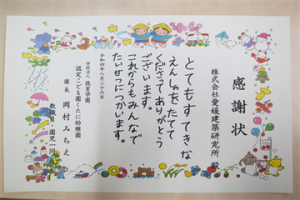 感謝状
株式会社愛媛建築研究所 殿
とてもすてきな
えんしゃをたてて
くださってありがとう
ございます。
これからもみんなで
たいせつにつかいます。
令和四年八月二十六日
学校法人 徳育学園
認定こども園くたに幼稚園
園長 岡村みちえ
教職員・園児一同